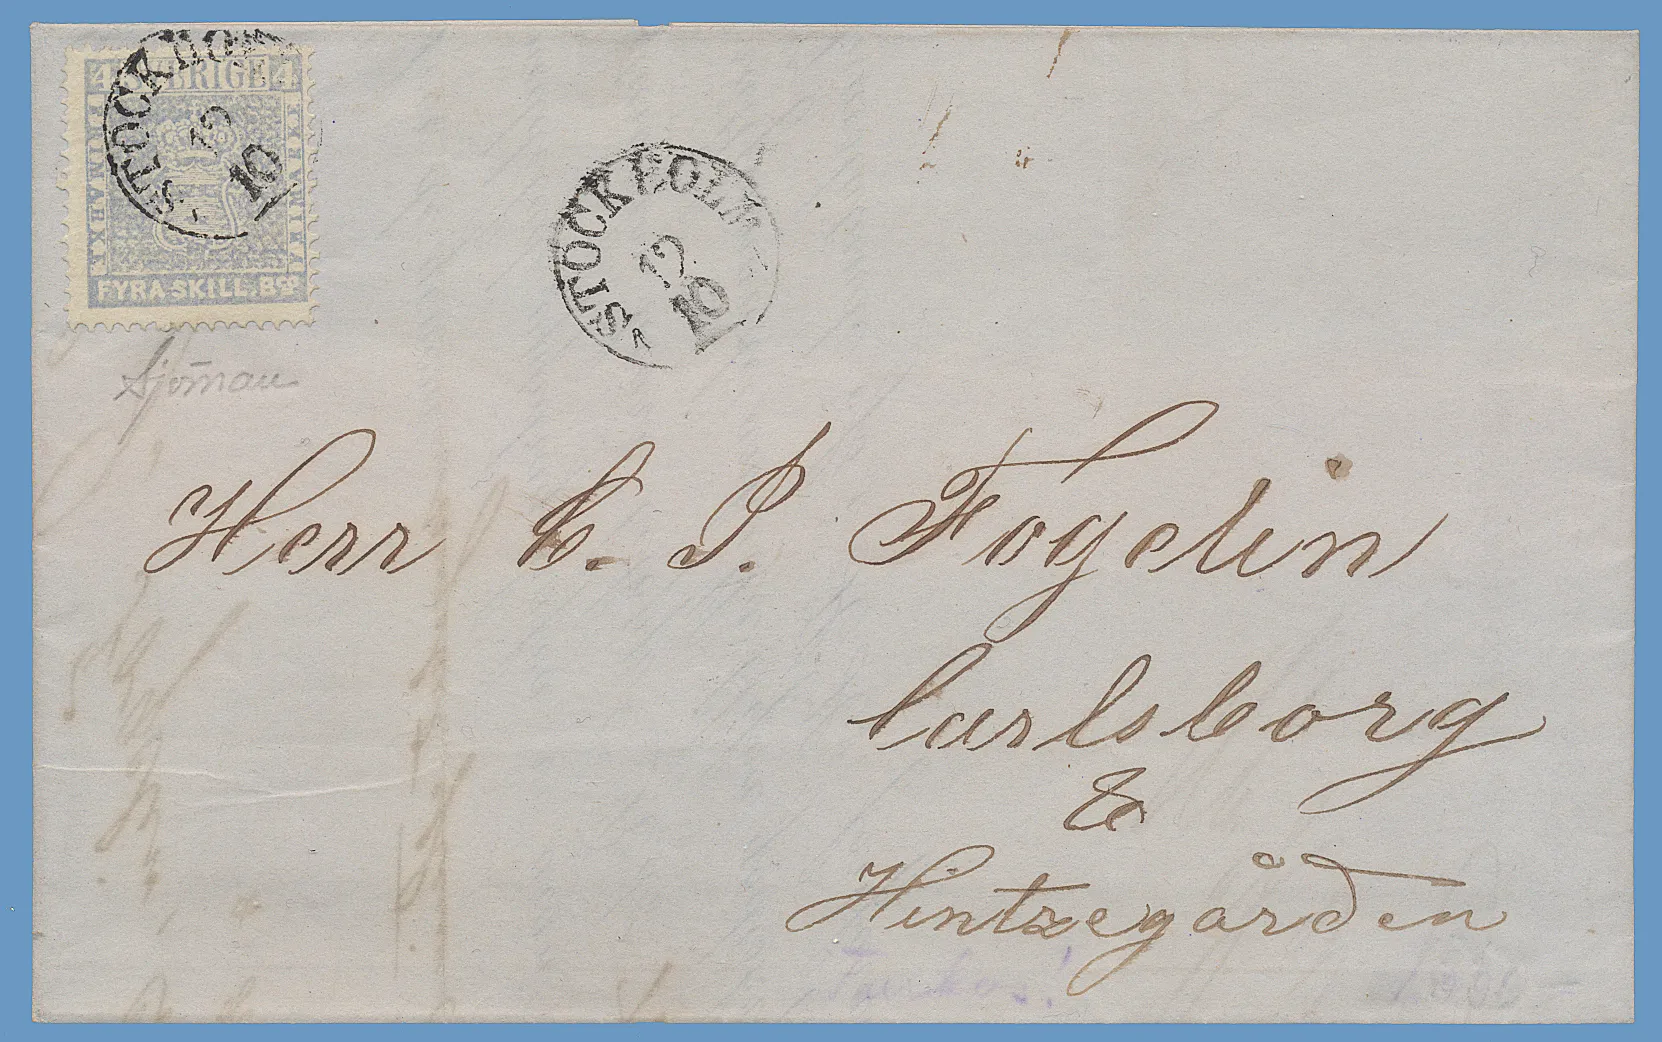 4 SVERIGE 4
FRIMÄRKE
FYRA SKILL. Bco
STOCKHOLM
12
10
STOCKHOLM
12
10
Sjöman
Herr C. J. Fogelin
Carlsborg
&
Hintzegården